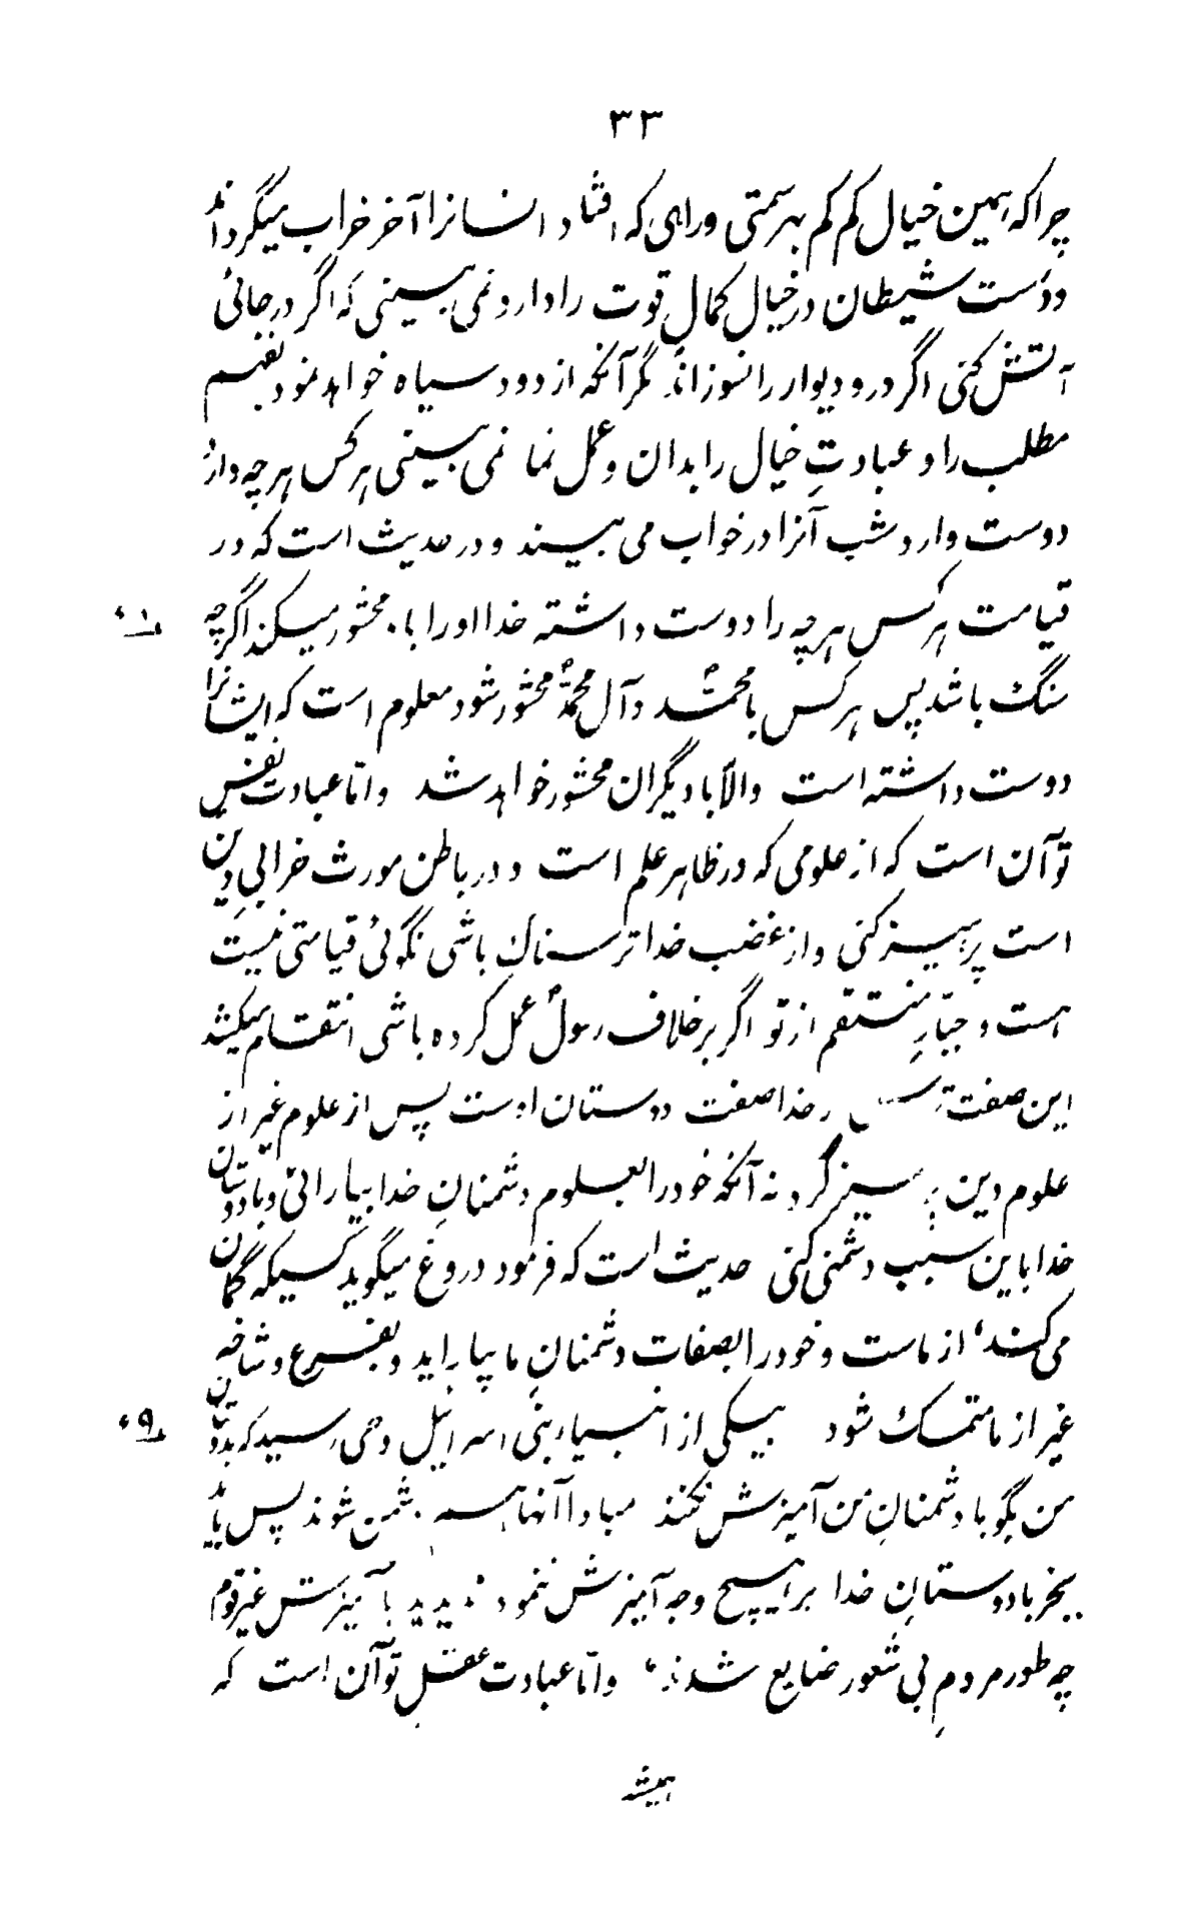 ۳۳
چرا که همین خیال کم کم بهر سمتی و راهی که افتاد انسانرا آخر خراب میگرداند
و دست شیطان در خیال کمال قوت را دارد نمی بینی که اگر در جائی
آتش کنی اگر در و دیوار را نسوزاند مگر آنکه از دود سیاه خواهد نمود بفهم
مطلب را و عبادت خیال را بدان و عمل نما نمی بینی هر کس هر چه دارد
دوست دارد شب آنرا در خواب می بیند و در حدیث است که در
قیامت هر کس هر چه را دوست داشته خدا او را با محشور میکند اگر چه
سنگ باشد پس هر کس با محمدؐ و آل محمدؐ محشور شود معلوم است که ایشانرا
دوست داشته است والّا با دیگران محشور خواهد شد و امّا عبادت نفس
تو آن است که از علومی که در ظاهر علم است و در باطن مورث خرابی دین
است پرهیز کنی و از غضب خدا ترسناک باشی نگوئی قیامتی نیست
هست و جبّار منتقم از تو اگر بر خلاف رسولؐ عمل کرده باشی انتقام میکشد
این صفت خدا صفت دوستان اوست پس از علوم غیر از
علوم دین پرهیز گرد نه آنکه خود را بعلوم دشمنان خدا بیارائی و با دوستان
خدا باین سبب دشمنی کنی حدیث است که فرمود دروغ میگوید کسیکه گمان
می کند از ماست و خود را بصفات دشمنان ما بیاراید و بفرع و شاخه
غیر از ما متمسک شود بیکی از انبیاء بنی اسرائیل وحی رسید که بدوستان
من بگو با دشمنان من آمیزش نکنند مبادا آنها هم دشمن شوند پس باید
بجز با دوستان خدا بر هیچ وجه آمیزش ننمود ندیدید با آمیزش غیر قوم
چه طور مردم بی شعور ضایع شدند و امّا عبادت عقل تو آن است که
همیشه